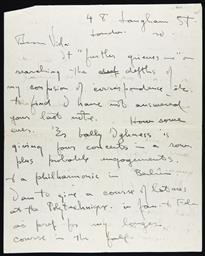 48 Langham St
London. W
Dear Vida
It "further grieves me" on
searching the depths of
my confusion of correspondence etc.
to find I have not answered
your last note. How come
ever. By bally Ugliness is
giving four concerts in a row
plus private engagements.
& a philharmonic in Berlin
I am to give a course of lectures
at the Polytechnique. in Jan & Feb
as pref for my longer
course in the fall.